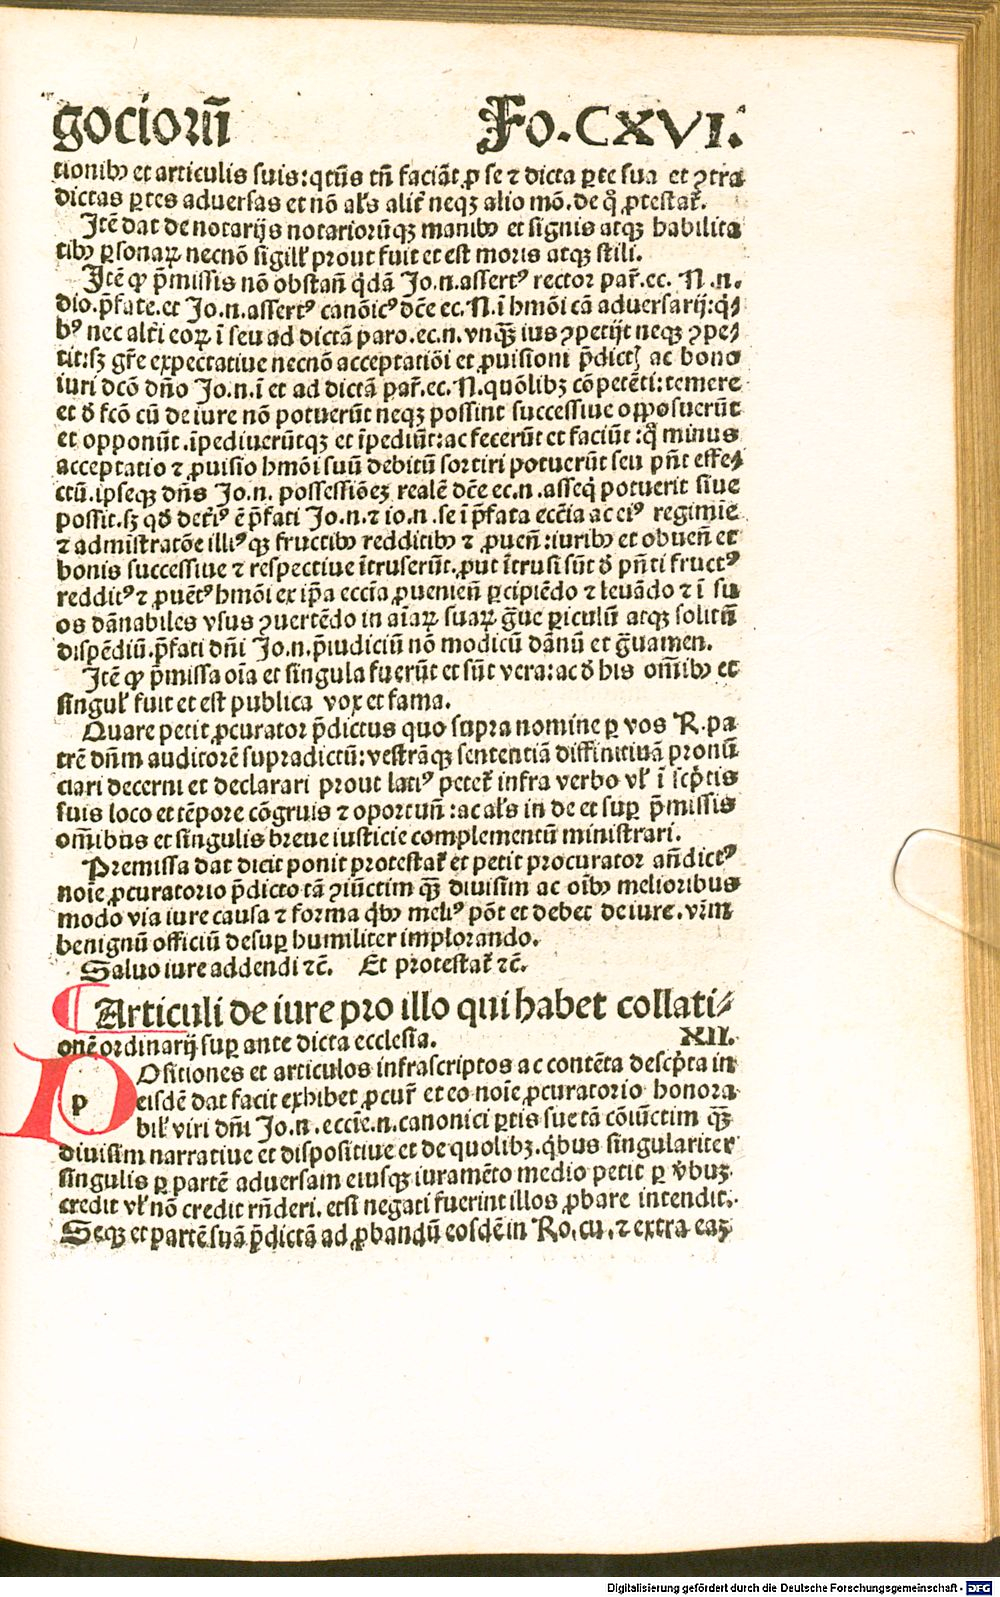 gocioꝝ̄ Fo. CXVI.
tionibꝰ et articulis suis: qtūs tn̄ faciāt ꝓ se ⁊ dicta ꝑte sua et ꝯtra
dictas ꝑtes aduersas et nō al's alit̄ neqꝫ alio mō. de qͦ ꝓtestat̄.
Itē dat de notarijs notariorūqꝫ manibꝰ et signis atqꝫ habilita
tibꝰ ꝑsonaꝝ necnō sigill' prout fuit et est moris atqꝫ stili.
Itē ꝙ p̄missis nō obstan̄ q̄dā Jo.n. assertꝰ rector par̄. ec. N.n.
dio. p̄fate. et Jo.n. assertꝰ canōicꝰ dc̄e ec. N. ī hmōi cā aduersarij: qͥ⸗
bꝰ nec alt̄i eoꝝ ī seu ad dictā paro. ec. n. vnqꝫ̄ ius ꝯpetijt neqꝫ ꝯpe⸗
tit: sꝫ gr̄e expectatiue necnō acceptatiōi et ꝓuisioni p̄dict' ac bono
iuri dcō dn̄o Jo.n. ī et ad dictā par̄. ec. N. quōlibꝫ cōpetēti: temere
et ð fcō cū de iure nō potuerūt neqꝫ possint successiue opposuerūt
et opponūt. īpediuerūtqꝫ et īpediūt: ac fecerūt et faciūt: qͦ minus
acceptatio ⁊ ꝓuisio hmōi suū debitū sortiri potuerūt seu pn̄t effe⸗
ctū. ip̄seqꝫ dn̄s Jo.n. possessiōeꝫ realē dc̄e ec. n. asseq̄ potuerit siue
possit. sꝫ qð det̄iꝰ ē p̄fati Jo.n. ⁊ io.n. se ī p̄fata ecc̄ia ac eiꝰ regimīe
⁊ administratōe illiꝰqꝫ fructibꝰ redditibꝰ ⁊ ꝓuen̄: iuribꝰ et obuen̄ et
bonis successiue ⁊ respectiue ītruserūt. ꝓut ītrusi sūt ð pn̄ti fructꝰ
redditꝰ ⁊ ꝓuētꝰ hmōi ex ip̄a ecc̄ia ꝓuenien̄ ꝑcipiēdo ⁊ leuādo ⁊ ī su
os dānabiles vsus ꝯuertēdo in aīaꝝ suaꝝ gͣue ꝑiculū atqꝫ solitū
dispēdiū. p̄fati dn̄i Jo.n. p̄iudiciū nō modicū dānū et gͣuamen.
Itē ꝙ p̄missa oīa et singula fuerūt et sūt vera: ac ð his om̄ibꝰ et
singul' fuit et est publica vox et fama.
Quare petit ꝓcurator p̄dictus quo supra nomine ꝑ vos R. pa
trē dn̄m auditorē supradictū: vestrāqꝫ sententiā diffinitiuā pronū
ciari decerni et declarari prout latiꝰ petet̄ infra verbo vl' ī scp̄tis
suis loco et tēpore cōgruis ⁊ oportun̄: ac al's in de et suꝑ p̄missis
om̄ibus et singulis breue iusticie complementū ministrari.
Premissa dat dicit ponit protestat̄ et petit procurator an̄dictꝰ
noīe ꝓcuratorio p̄dicto tā ꝯiūctim qꝫ̄ diuisim ac oībꝰ melioribus
modo via iure causa ⁊ forma qͥbꝰ meliꝰ pōt et debet de iure. vr̄m
benignū officiū desuꝑ humiliter implorando.
Saluo iure addendi ⁊c̄. Et protestat̄ ⁊c̄.
¶ Articuli de iure pro illo qui habet collati⸗
onē ordinarij suꝑ ante dicta ecclesia. XII.
p Ositiones et articulos infrascriptos ac contēta descp̄ta in
eisdē dat facit exhibet ꝓcur̄ et eo noīe ꝓcuratorio honora
bil' viri dn̄i Jo.n. ecc̄ie. n. canonici ꝑtis sue tā cōiūctim qꝫ̄
diuisim narratiue et dispositiue et de quolibꝫ. qͥbus singulariter
singulis ꝑ partē aduersam eiusqꝫ iuramēto medio petit ꝑ v̄buꝫ
credit vl' nō credit rn̄deri. etsi negati fuerint illos ꝓbare intendit.
Seqꝫ et partē suā p̄dictā ad ꝓbandū eosdē in Ro. cu. ⁊ extra eaꝫ
Digitalisierung gefördert durch die Deutsche Forschungsgemeinschaft - DFG